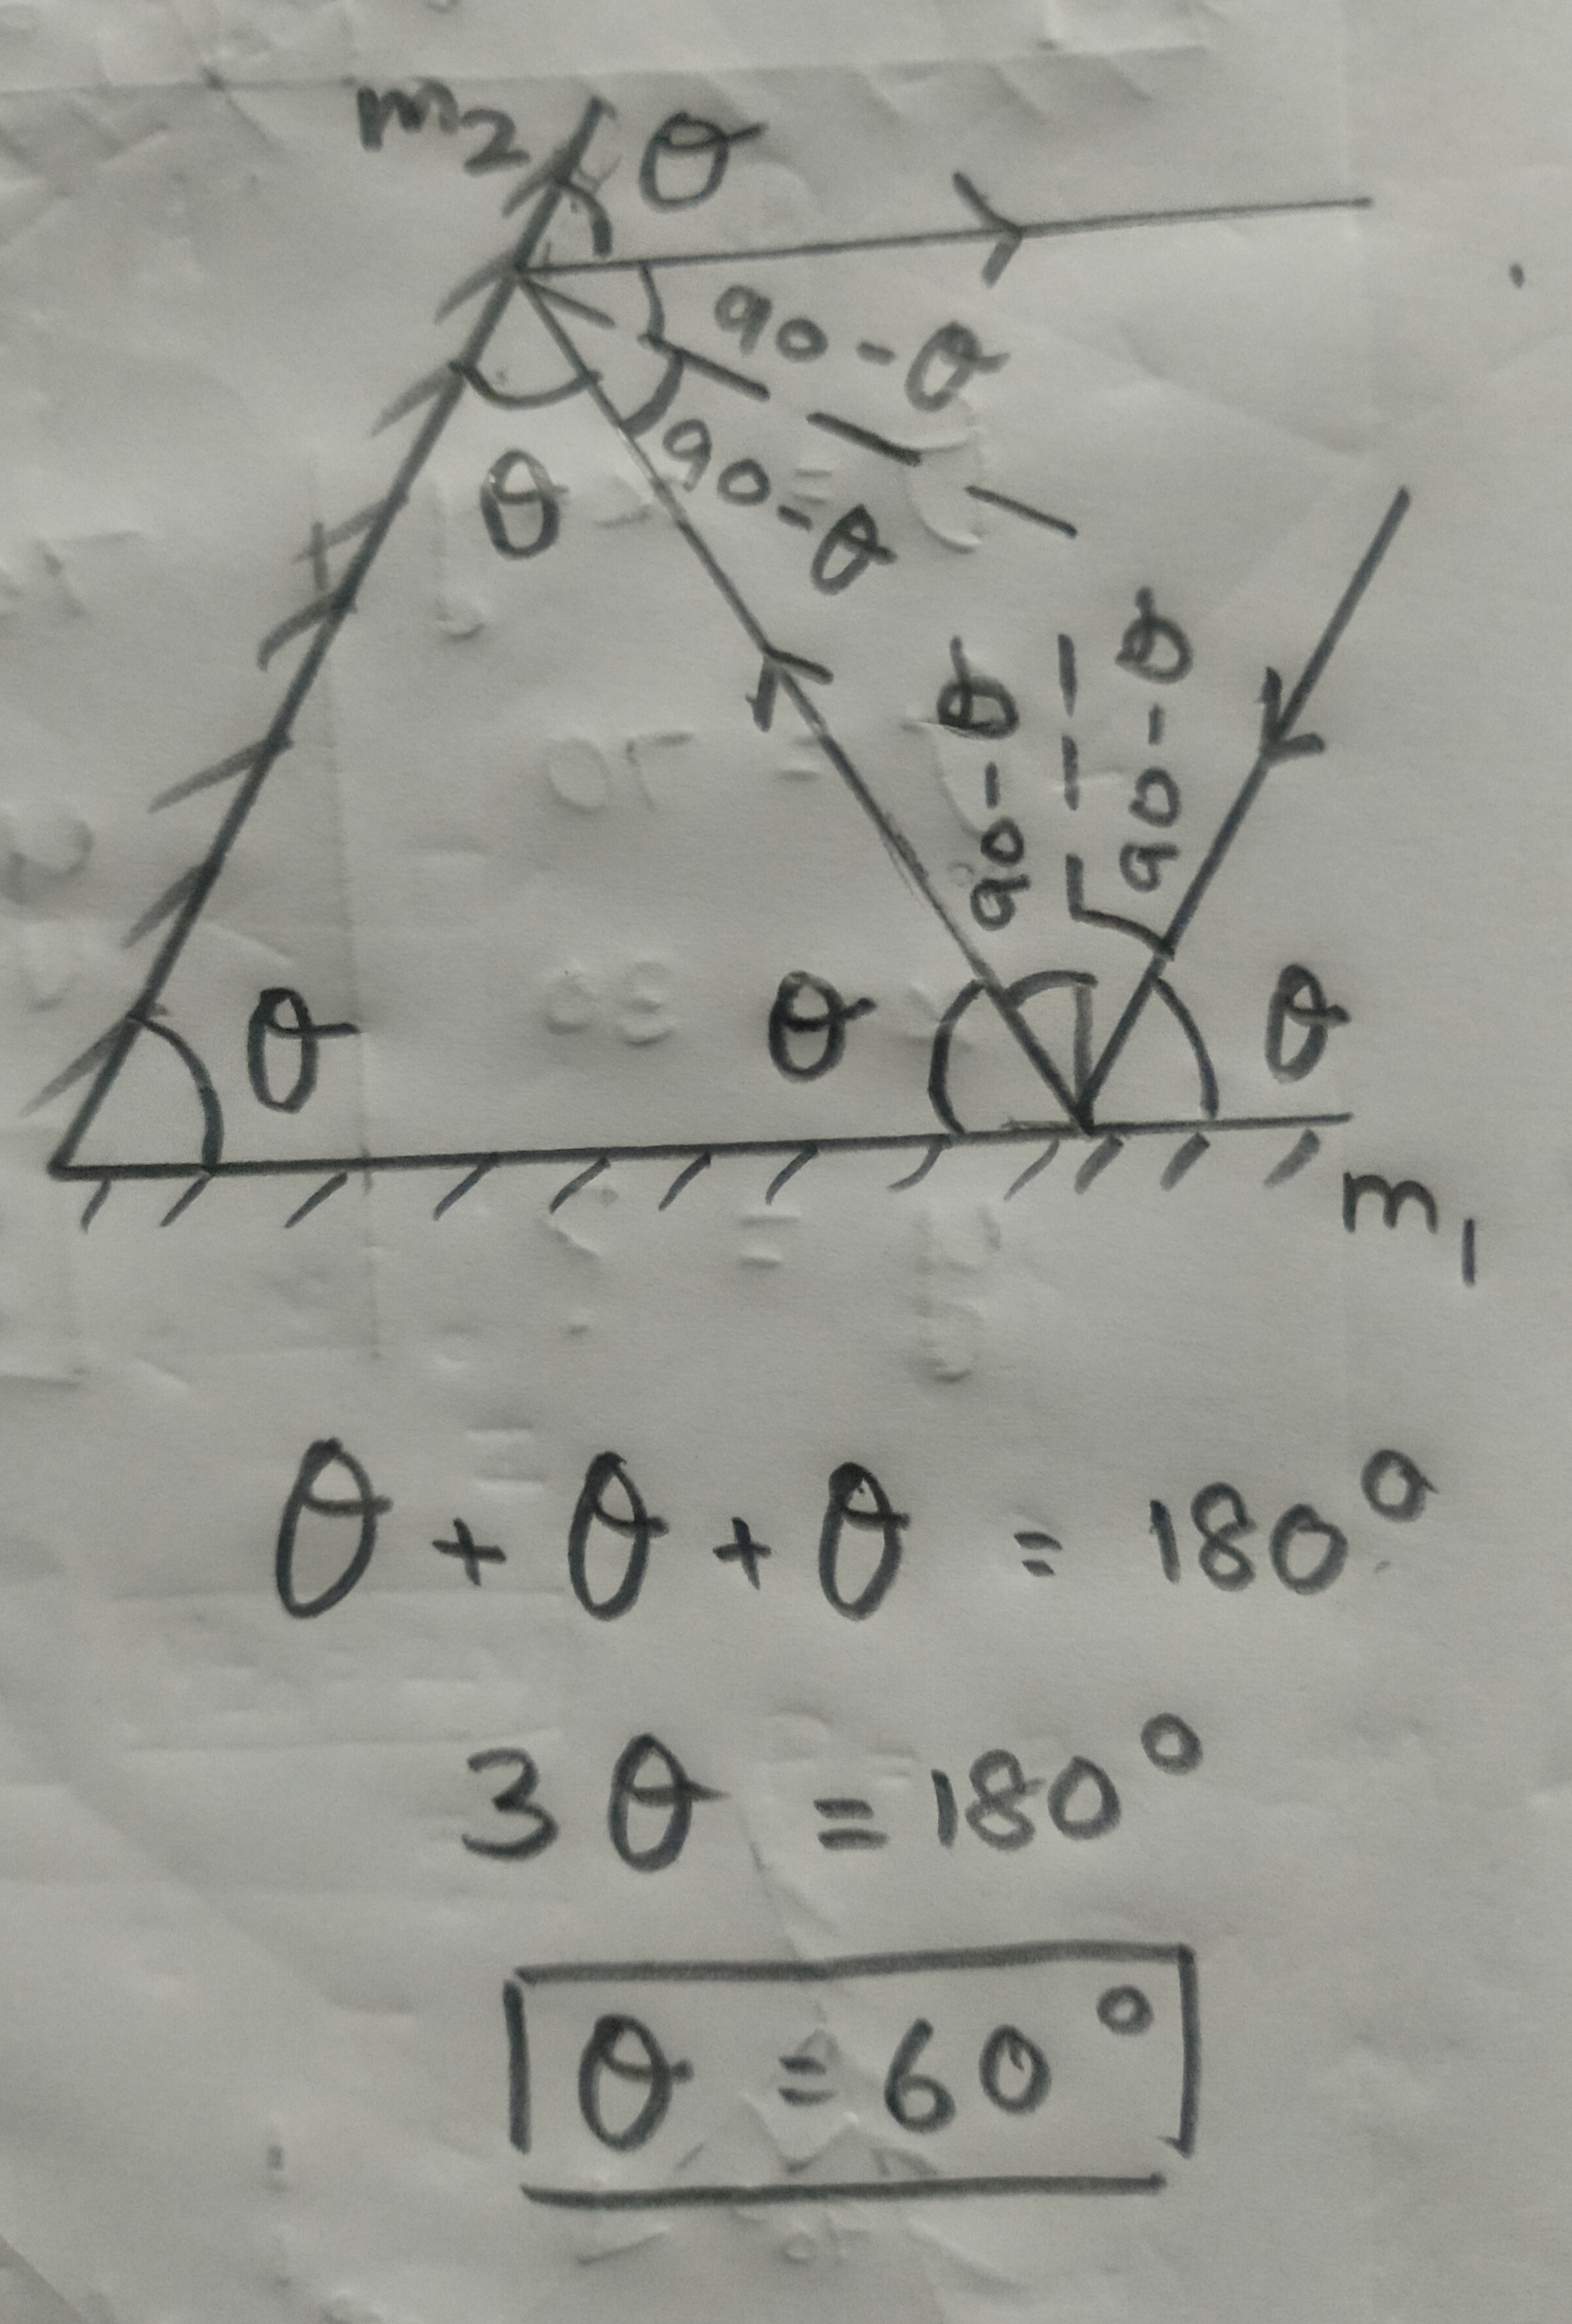 m2 θ
90-θ
90-θ
θ
90-θ
90-θ
θ
θ
θ
m1
θ + θ + θ = 180°
3θ = 180°
θ = 60°